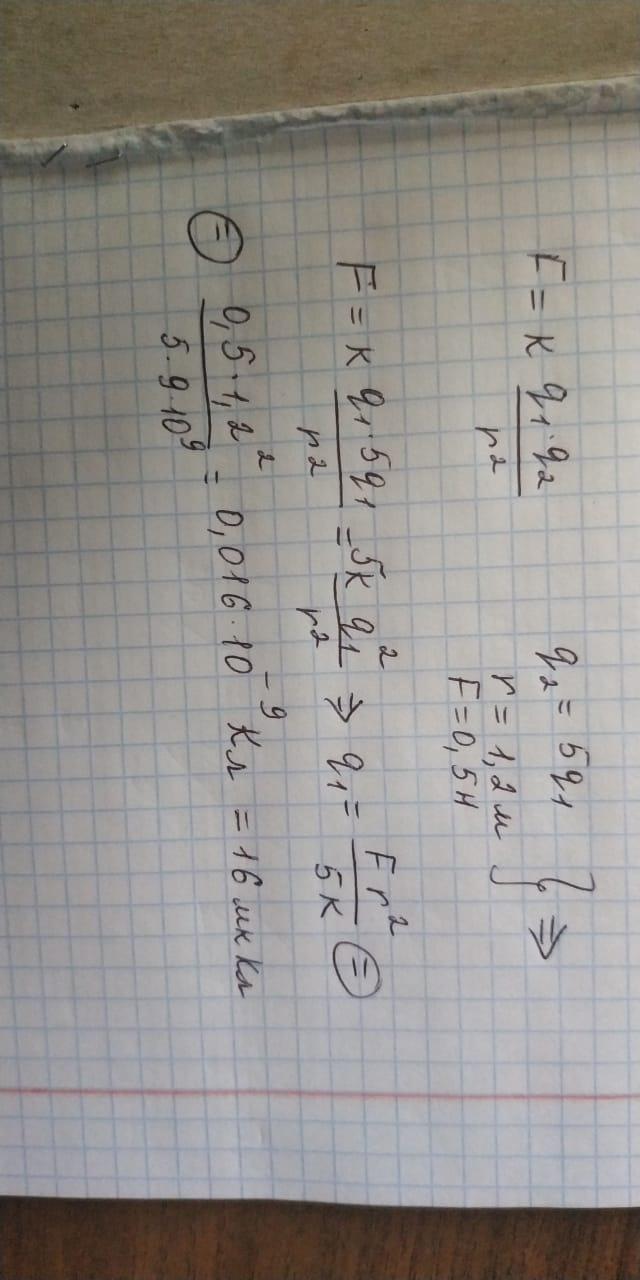 F = к q₁·q₂ / r²
q₂ = 5q₁
r = 1,2 м
F = 0,5 н
} ⇒
F = к q₁·5q₁ / r² = 5к q₁² / r² ⇒ q₁ = F r² / 5к ⊜
⊜ 0,5·1,2² / 5·9·10⁹ = 0,016·10⁻⁹ Кл = 16 мкКл